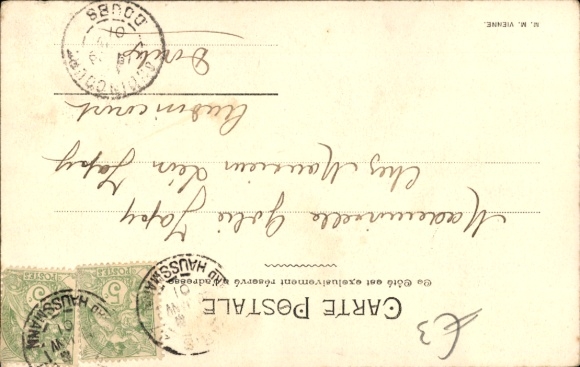 CARTE POSTALE
Ce Côté est exclusivement réservé à l'adresse
Mademoiselle Jolie Japy
Chez Monsieur Léon Japy
Audincourt
Doubs
AUDINCOURT
DOUBS
01
BD HAUSSMANN
01
BD HAUSSMANN
POSTES
5
POSTES
5
M. M. VIENNE.
£3